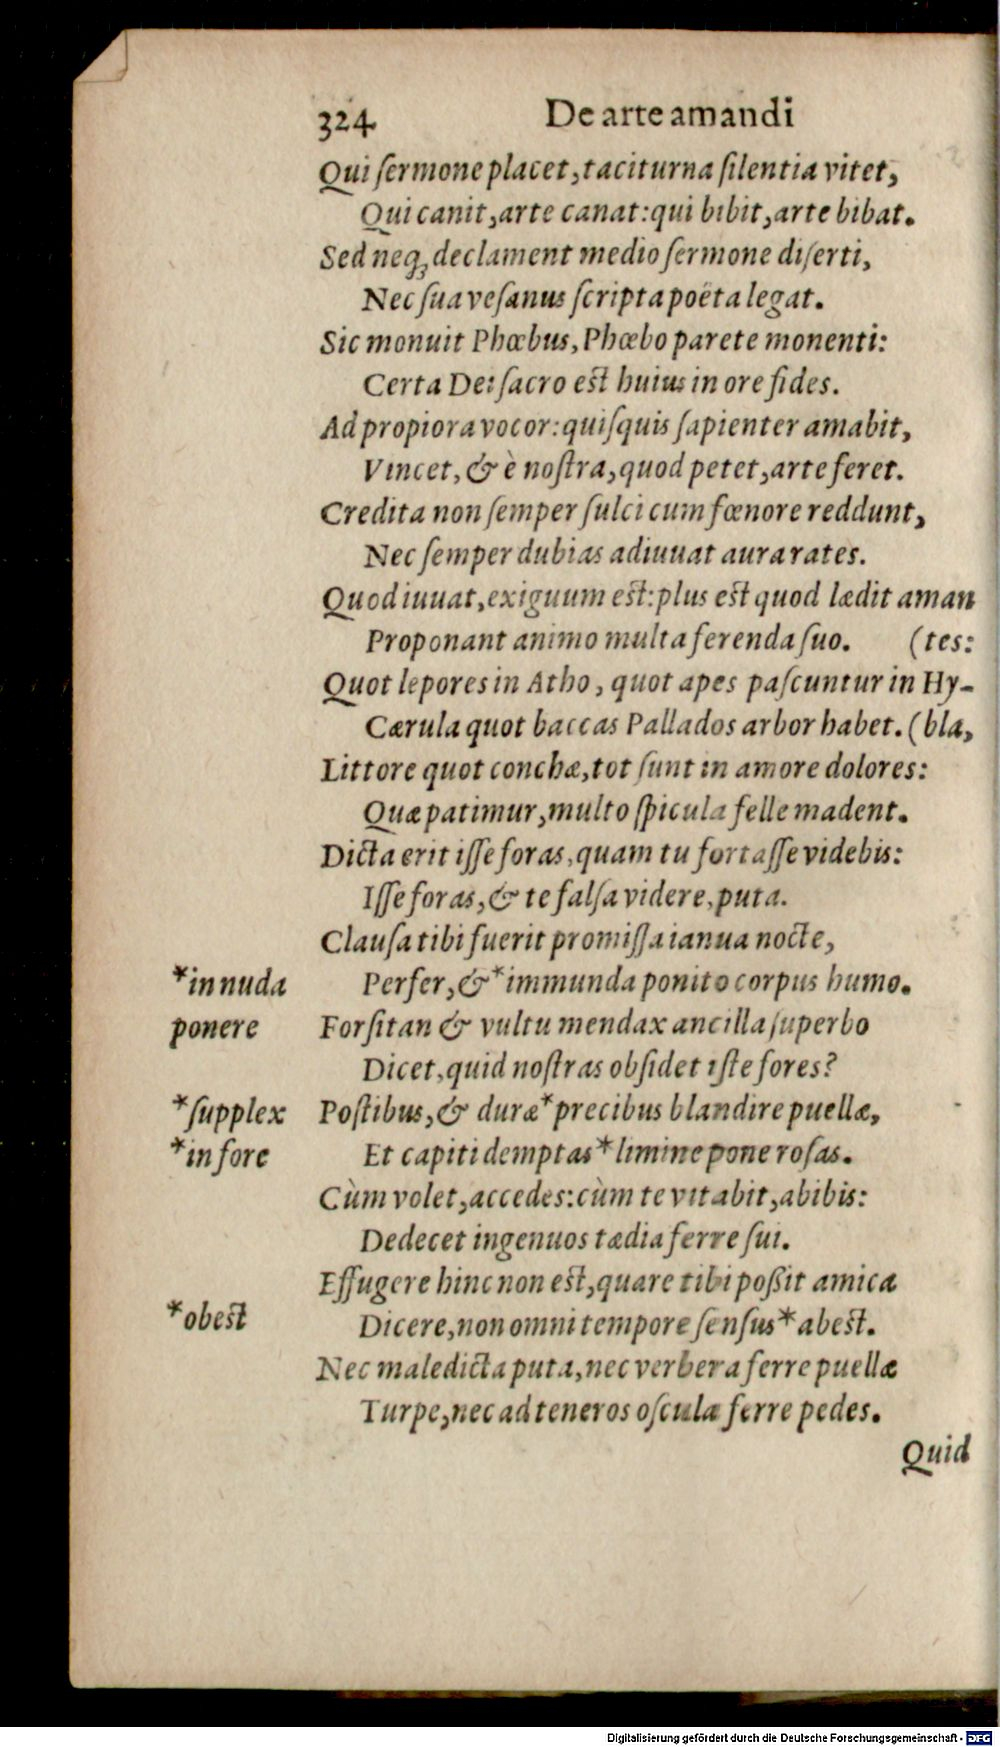 324 De arte amandi
Qui ſermone placet, taciturna ſilentia vitet,
Qui canit, arte canat: qui bibit, arte bibat.
Sed neq; declament medio ſermone diſerti,
Nec ſua veſanus ſcripta poëta legat.
Sic monuit Phœbus, Phœbo parete monenti:
Certa Dei ſacro eſt huius in ore fides.
Ad propiora vocor: quiſquis ſapienter amabit,
Vincet, & è noſtra, quod petet, arte feret.
Credita non ſemper ſulci cum fœnore reddunt,
Nec ſemper dubias adiuuat aura rates.
Quod iuuat, exiguum eſt: plus eſt quod lædit aman
Proponant animo multa ferenda ſuo. (tes:
Quot lepores in Atho, quot apes paſcuntur in Hy-
Cærula quot baccas Pallados arbor habet. (bla,
Littore quot conchæ, tot ſunt in amore dolores:
Quæ patimur, multo ſpicula felle madent.
Dicta erit iſſe foras, quam tu fortaſſe videbis:
Iſſe foras, & te falſa videre, puta.
Clauſa tibi fuerit promiſſa ianua nocte,
*in nuda Perfer, & *immunda ponito corpus humo.
ponere Forſitan & vultu mendax ancilla ſuperbo
Dicet, quid noſtras obſidet iſte fores?
*ſupplex Poſtibus, & duræ *precibus blandire puellæ,
*in fore Et capiti demptas *limine pone roſas.
Cùm volet, accedes: cùm te vitabit, abibis:
Dedecet ingenuos tædia ferre ſui.
Effugere hinc non eſt, quare tibi poßit amica
*obeſt Dicere, non omni tempore ſenſus *abeſt.
Nec maledicta puta, nec verbera ferre puellæ
Turpe, nec ad teneros oſcula ferre pedes.
Quid
Digitalisierung gefördert durch die Deutsche Forschungsgemeinschaft - DFG